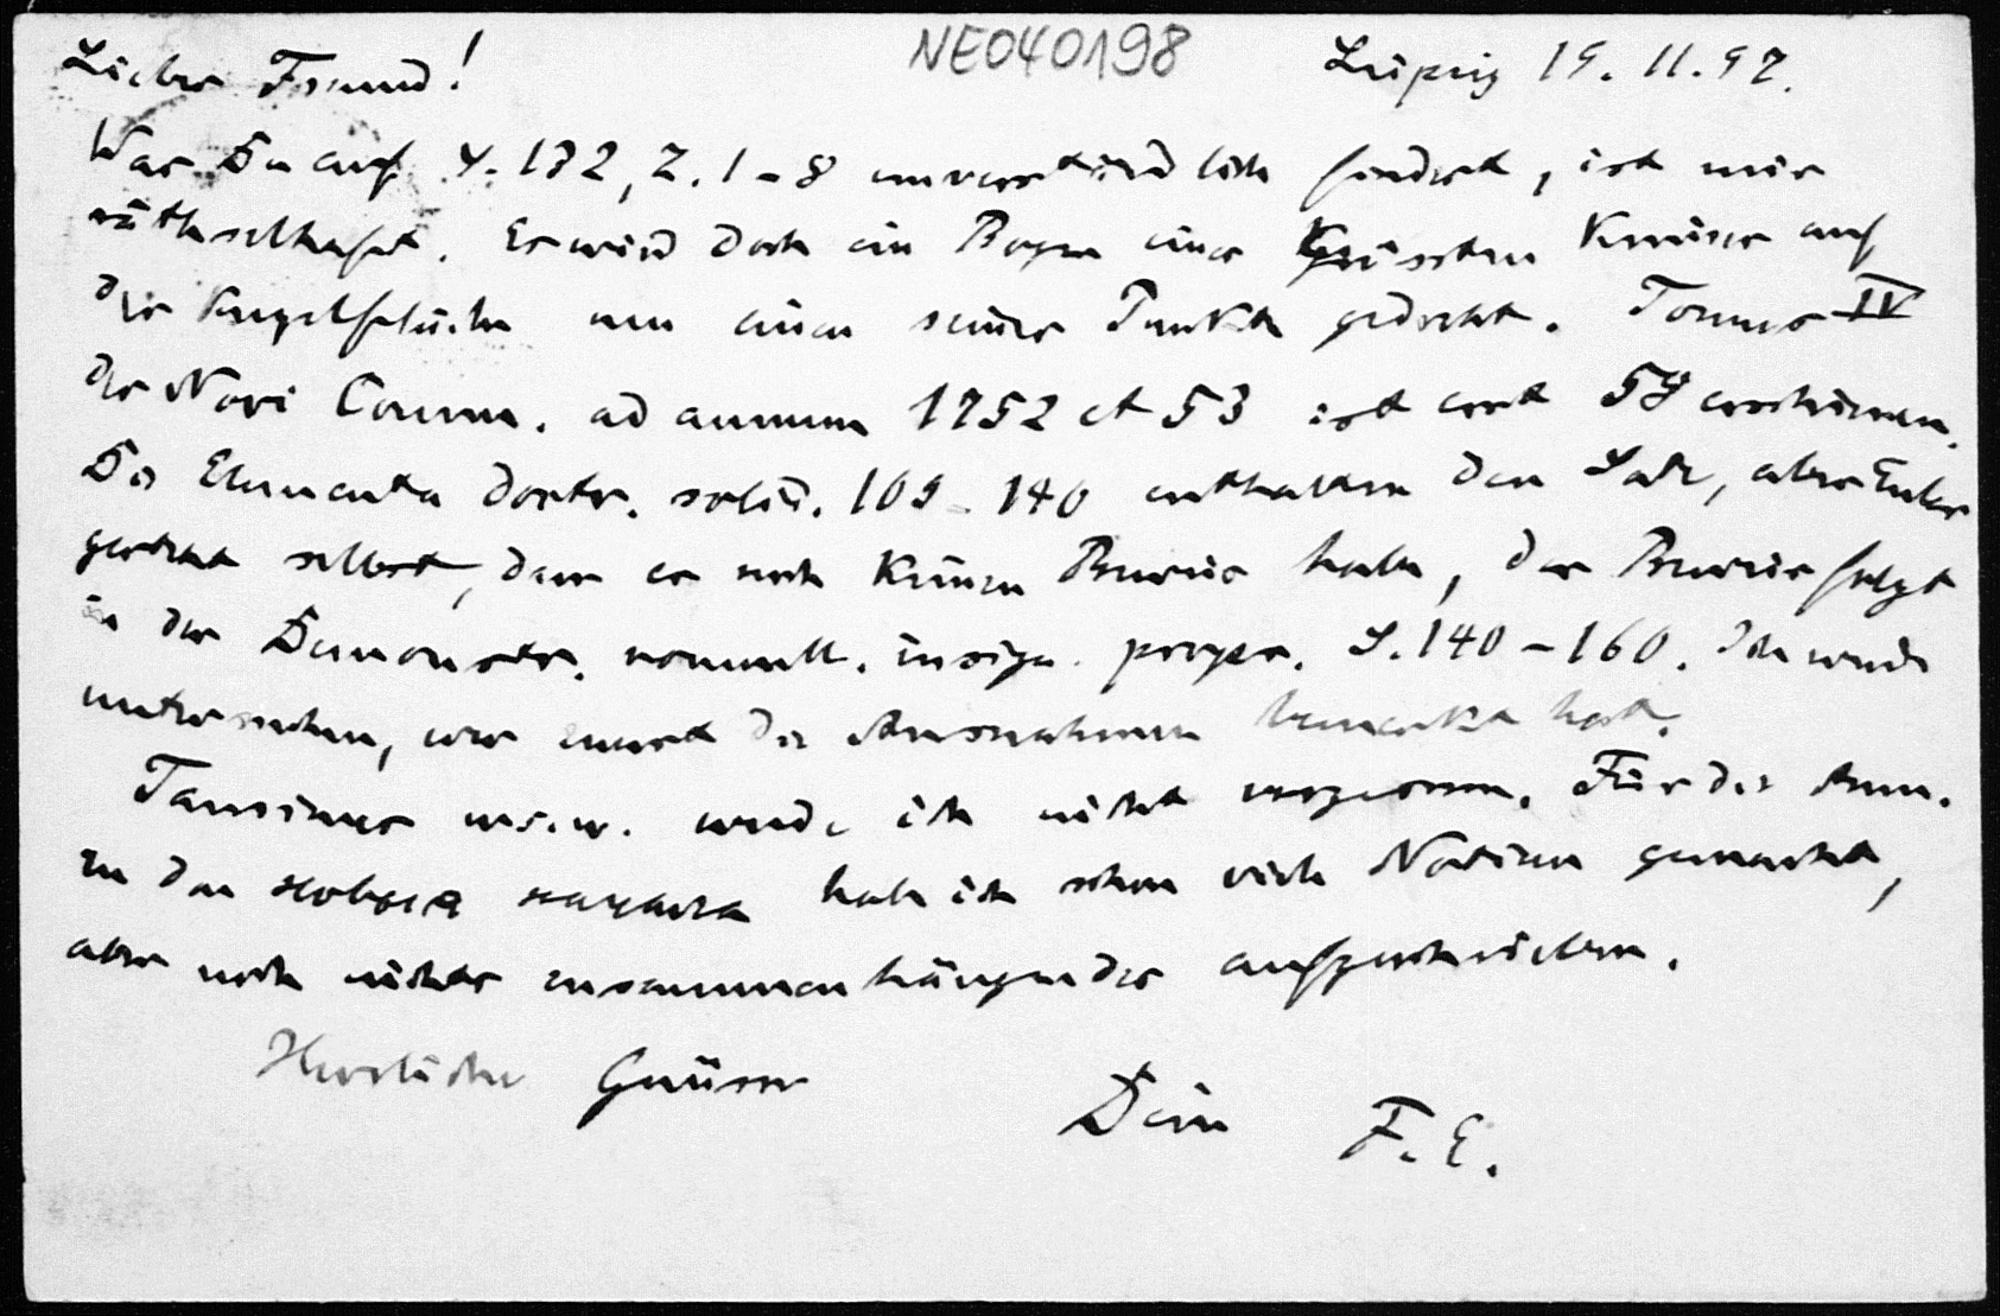 NE040198
Lieber Freund! Leipzig 19. 11. 97.
Was Du auf S. 132, Z. 1-8 unverständlich findest, ist mir
räthselhaft. Es wird doch ein Bogen eines grössten Kreises auf
der Kugelfläche um einen seiner Punkte gedreht. Tomus IV
der Novi Comm. ad annum 1752 et 53 ist erst 58 erschienen.
Die Elementa doctr. solid. 109-140 enthalten den Satz, aber Euler
gesteht selbst, dass er noch keinen Beweis habe, der Beweis folgt
in der Demonstr. nonnull. insign. propr. S. 140-160. Ich werde
untersuchen, wer zuerst die Ausnahmen bemerkt hat.
Taurinus u.s.w. werde ich nicht vergessen. Für die Anm.
zu den новыя начала habe ich schon viele Notizen gemacht,
aber noch nichts zusammenhängendes aufgeschrieben.
Herzliche Grüsse
Dein F. E.